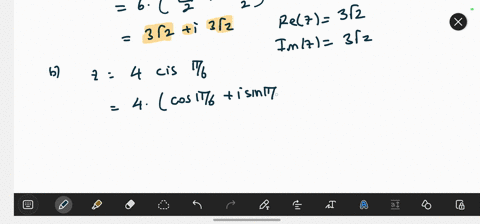 = 6. ( /2 2 )
= 3√2 + i 3√2
Re(z) = 3√2
Im(z) = 3√2
b) z = 4 cis π/6
= 4. ( cos π/6 + i sin π